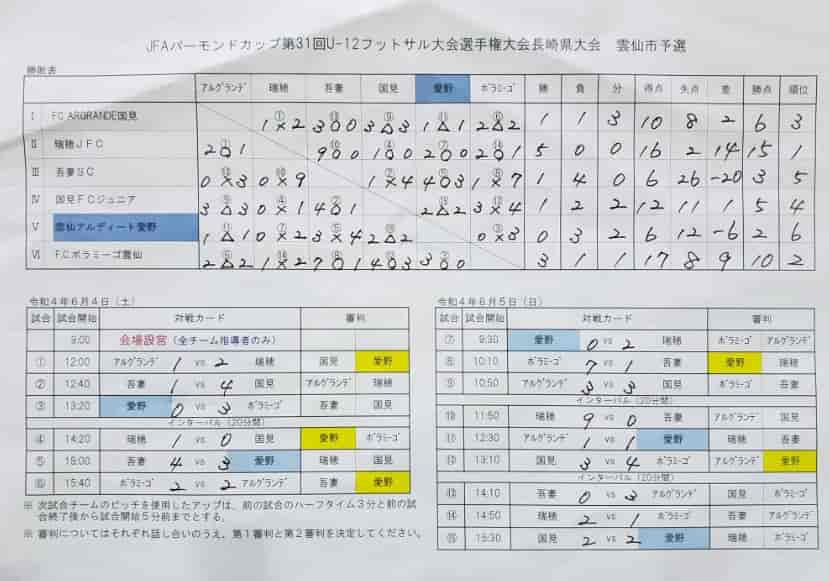 JFAバーモンドカップ第31回U-12フットサル大会選手権大会長崎県大会 雲仙市予選
勝敗表
アルグランデ 瑞穂 吾妻 国見 愛野 ボラミーゴ 勝 負 分 得点 失点 差 勝点 順位
Ⅰ FC ARGRANDE国見 ① 1×2 ⑬ 3〇0 ⑨ 3△3 ⑪ 1△1 ⑥ 2△2 1 1 3 10 8 2 6 3
Ⅱ 瑞穂JFC ① 2〇1 ⑩ 9〇0 ④ 1〇0 ⑦ 2〇0 ⑭ 2〇1 5 0 0 16 2 14 15 1
Ⅲ 吾妻SC ⑬ 0×3 ⑩ 0×9 ② 1×4 ⑤ 4〇3 ⑧ 1×7 1 4 0 6 26 -20 3 5
Ⅳ 国見FCジュニア ⑨ 3△3 ④ 0×1 ② 4〇1 ⑮ 2△2 ⑫ 3×4 1 2 2 12 11 1 5 4
Ⅴ 雲仙アルディート愛野 ⑪ 1△1 ⑦ 0×2 ⑤ 3×4 ⑮ 2△2 ③ 0×3 0 3 2 6 12 -6 2 6
Ⅵ F.Cボラミーゴ雲仙 ⑥ 2△2 ⑭ 1×2 ⑧ 7〇1 ⑫ 4〇3 ③ 3〇0 3 1 1 17 8 9 10 2
令和4年6月4日(土)
試合 試合開始 対戦カード 審判
9:00 会場設営(全チーム指導者のみ)
① 12:00 アルグランデ 1 vs 2 瑞穂 国見 愛野
② 12:40 吾妻 1 vs 4 国見 アルグランデ 瑞穂
③ 13:20 愛野 0 vs 3 ボラミーゴ 吾妻 国見
インターバル(20分間)
④ 14:20 瑞穂 1 vs 0 国見 愛野 ボラミーゴ
⑤ 15:00 吾妻 4 vs 3 愛野 瑞穂 国見
⑥ 15:40 ボラミーゴ 2 vs 2 アルグランデ 吾妻 愛野
※ 次試合チームのピッチを使用したアップは、前の試合のハーフタイム3分と前の試
合終了後から試合開始5分前までとする。
※ 審判についてはそれぞれ話し合いのうえ、第1審判と第2審判を決定してください。
令和4年6月5日(日)
試合 試合開始 対戦カード 審判
⑦ 9:30 愛野 0 vs 2 瑞穂 ボラミーゴ アルグランデ
⑧ 10:10 ボラミーゴ 7 vs 1 吾妻 愛野 瑞穂
⑨ 10:50 アルグランデ 3 vs 3 国見 ボラミーゴ 吾妻
インターバル(20分間)
⑩ 11:50 瑞穂 9 vs 0 吾妻 アルグランデ 国見
⑪ 12:30 アルグランデ 1 vs 1 愛野 瑞穂 吾妻
⑫ 13:10 国見 3 vs 4 ボラミーゴ アルグランデ 愛野
インターバル(20分間)
⑬ 14:10 吾妻 0 vs 3 アルグランデ 国見 ボラミーゴ
⑭ 14:50 瑞穂 2 vs 1 ボラミーゴ 吾妻 アルグランデ
⑮ 15:30 国見 2 vs 2 愛野 瑞穂 ボラミーゴ